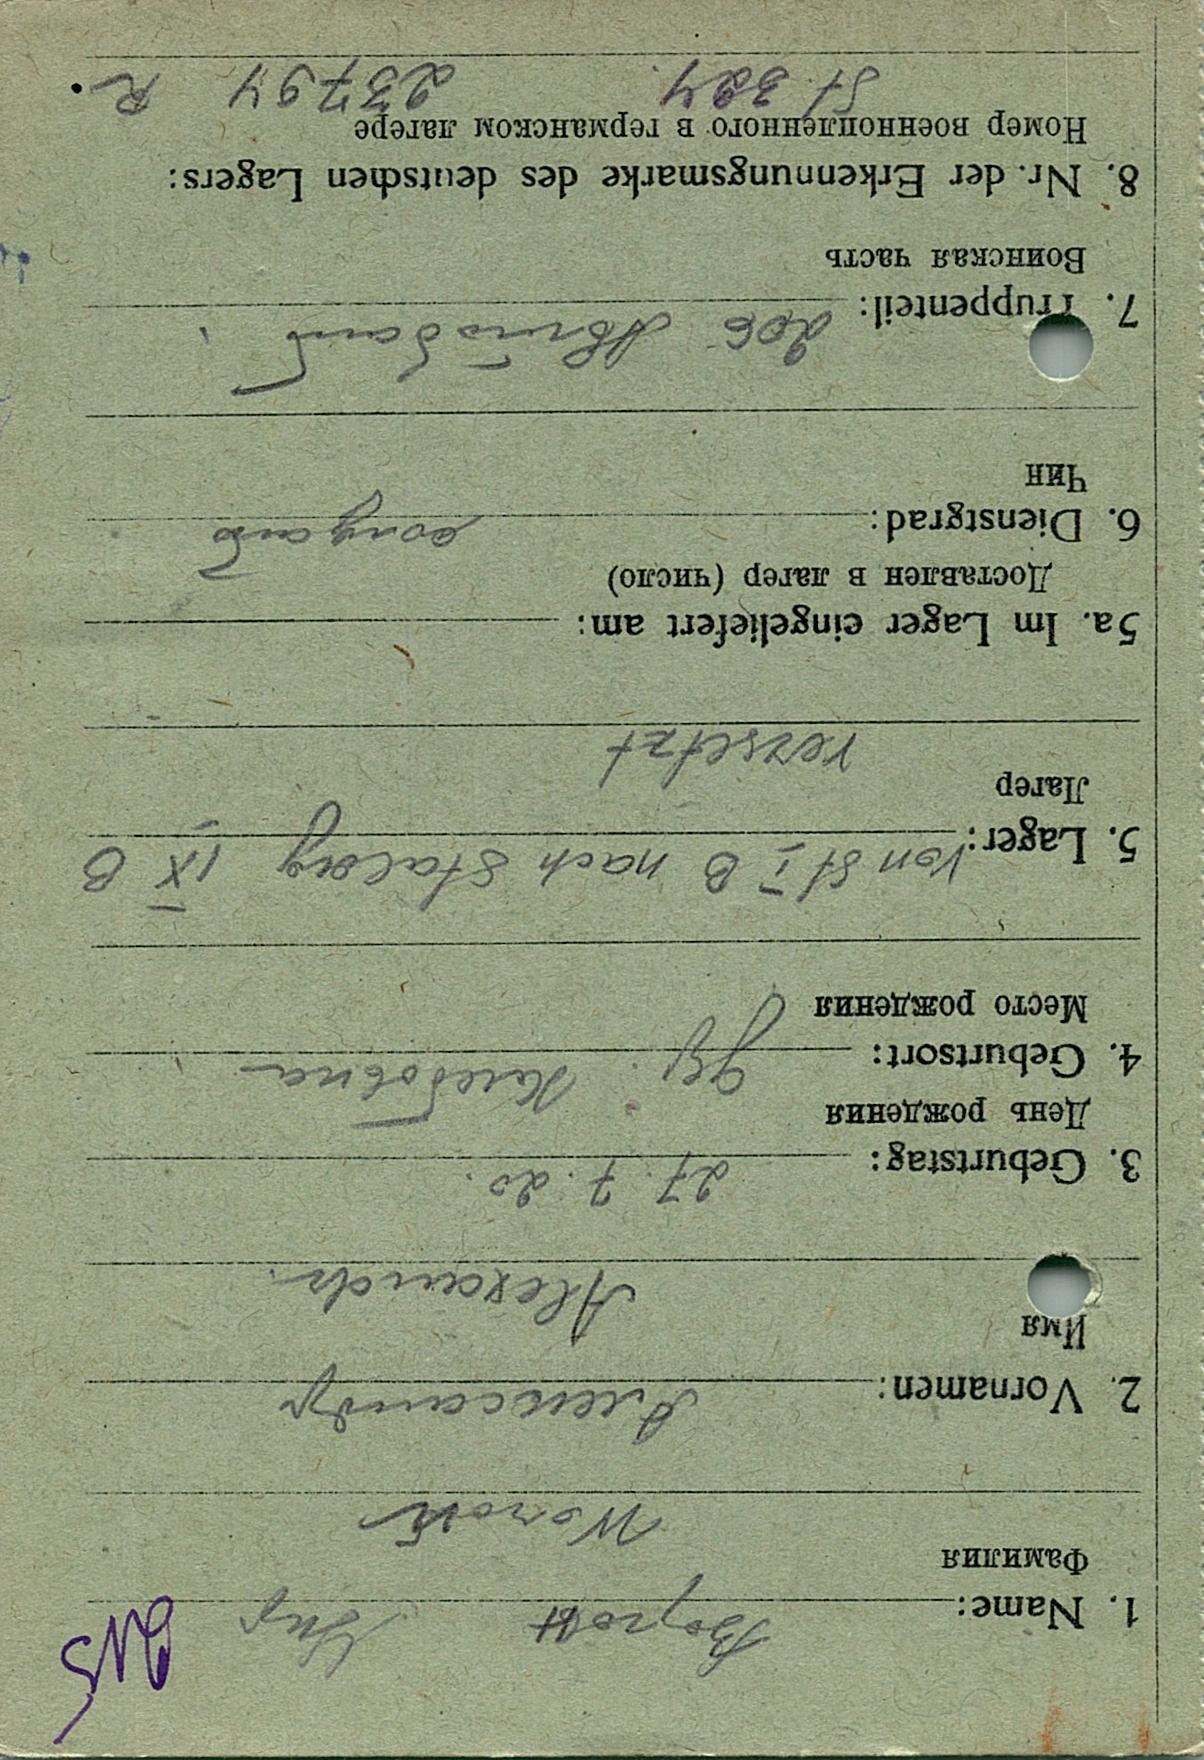 1. Name: Ворон Укр
Фамилия
Woron
2. Vornamen: Александр
Имя
Alexandr.
3. Geburtstag: 27.7.20.
День рождения
4. Geburtsort:
Место рождения
5. Lager: Von St I B nach Stalag IX B
Лагер
versetzt
5a. Im Lager eingeliefert am:
Доставлен в лагер (число)
6. Dienstgrad: солдат
Чин
7. Truppenteil: 206 Автобат
Воинская часть
8. Nr. der Erkennungsmarke des deutschen Lagers:
Номер военнопленного в германском лагере
St. 324 23794 R.